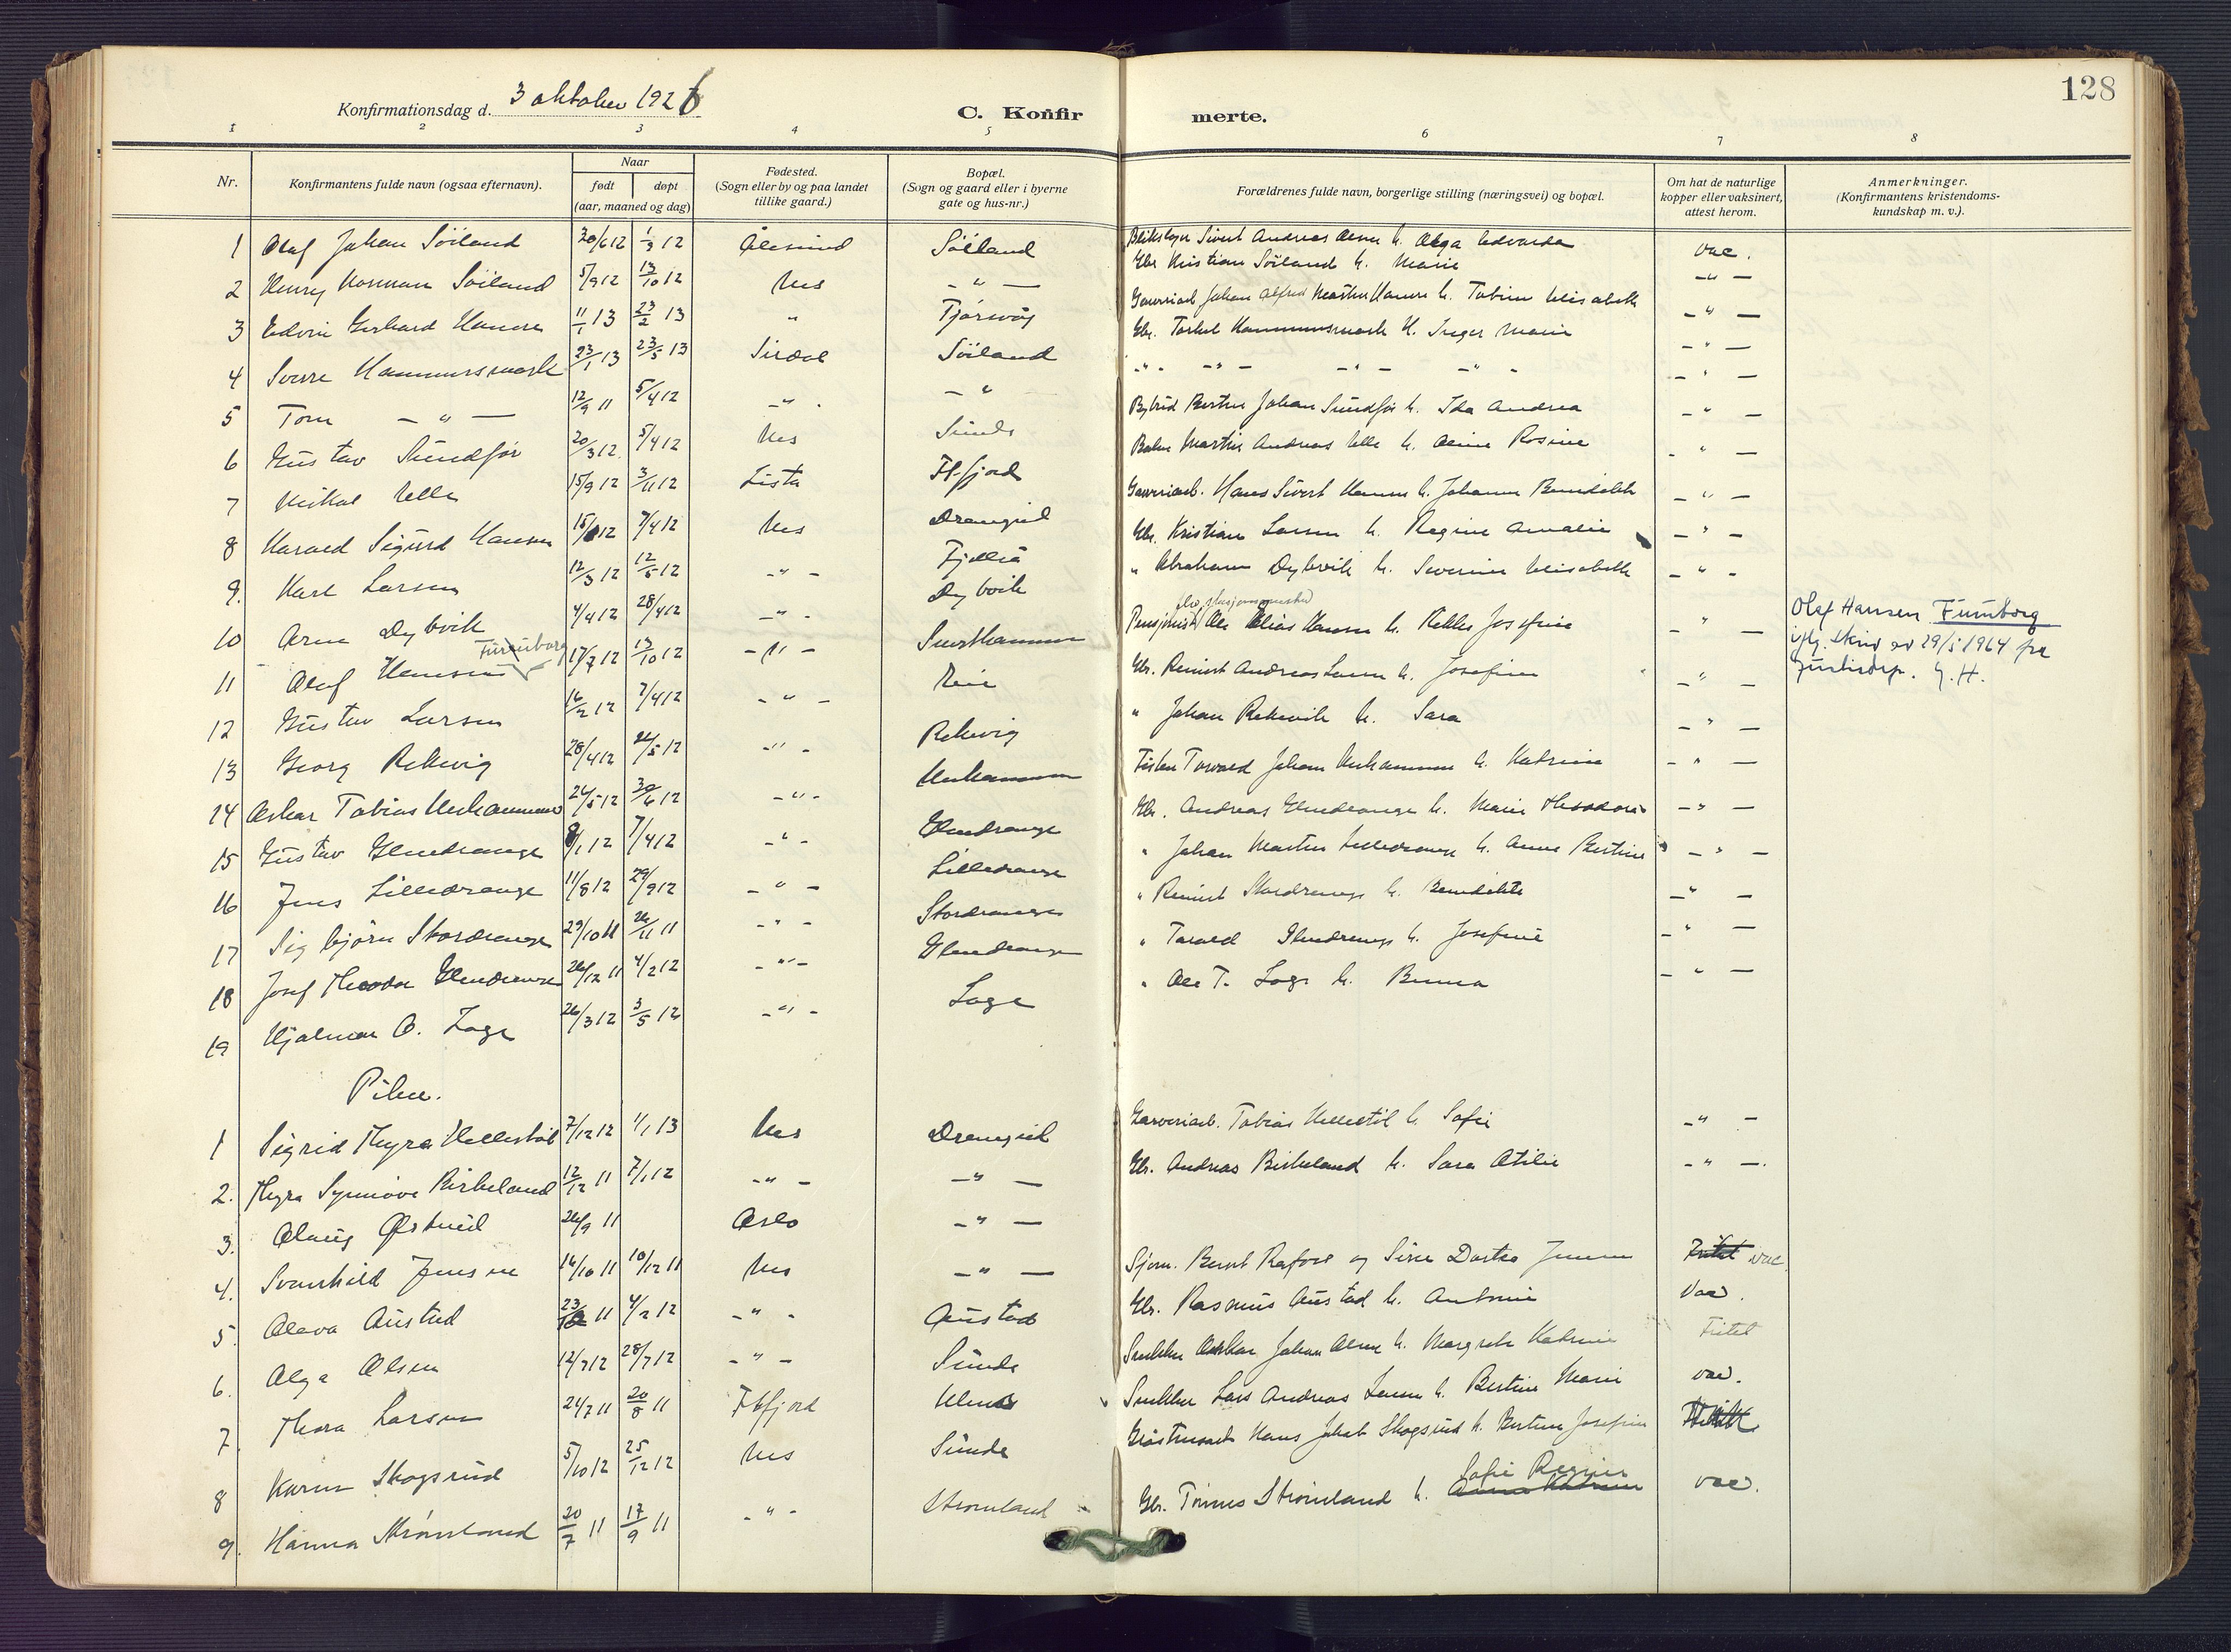 128
Konfirmationsdag d. 3 oktober 1926
C. Konfir merte.
1 2 3 4 5 6 7 8
Nr.
Konfirmantens fulde navn (ogsaa efternavn).
Naar
født døpt
(aar, maaned og dag)
Fødested.
(Sogn eller by og paa landet
tillike gaard.)
Bopæl.
(Sogn og gaard eller i byerne
gate og hus-nr.)
Forældrenes fulde navn, borgerlige stilling (næringsvei) og bopæl.
Om hat de naturlige
kopper eller vaksinert,
attest herom.
Anmerkninger.
(Konfirmantens kristendoms-
kundskap m. v.).
1 Olaf Johan Söiland 30/6 12 1/3 12 Ålesund Söiland Sivert Andreas Olsen h. Olga Edvarda vac.
2 Henry Norman Söiland 5/9 12 13/10 12 Nes -"- Gbr. Kristian Söiland h. Marie -"-
3 Edvin Gerhard Hansen 11/1 13 23/2 13 " Tjörsvåg Garveriarb. Johan Alfred Martin Hansen h. Tobine Elisabeth -"-
4 Sverre Hammersmark 23/1 13 23/5 13 Sirdal Söiland Gbr. Torkel Hammersmark h. Inger Marie -"-
5 Tom -"- 12/9 11 5/4 12 -"- -"- -"- -"- -"- -"- -"-
6 Gustav Sundför 20/3 12 5/4 12 Nes Sunde Bybud Johan Sundför h. Ida Andrea -"-
7 Mikal Elle 15/9 12 3/11 12 Lista Fl.fjord Baker Martin Andreas Elle h. Rosine -"-
8 Harald Sigurd Hansen 15/ 12 7/4 12 Nes Drangeid Garveriarb. Hans Sivert Hansen h. Johanne Bendikte -"-
9. Karl Larsen 12/3 12 12/5 12 -"- Fjellså Gbr. Kristian Larsen h. Regine Amalie -"-
10 Arne Dybvik 4/4 12 28/4 12 -"- Dybvik " Abraham Dybvik h. Severine Elisabeth -"-
11 Olaf Hansen Furuborg 17/7 12 13/10 12 -"- Pensjonist Ole Elias Hansen h. Josefine -"- Olaf Hansen Furuborg
iflg. skriv av 29/5 1964 fra
Justisdep. G. H.
12 Gustav Larsen 16/2 12 7/4 12 -"- Gbr. Reinert Andreas Larsen h. Josefine -"-
13 Georg Rekevig 28/4 12 26/5 12 -"- Rekevig " Johan Rekevik h. Sara -"-
14 Oskar Tobias Urhammer 24/5 12 30/6 12 -"- Urhammer Fisker Torvald Johan Urhammer h. Katrine -"-
15 Gustav Glendrange 8/1 12 7/4 12 -"- Glendrange Gbr. Andreas Glendrange h. Marie Theodora -"-
16 Jens Lilledrange 11/8 12 29/9 12 -"- Lilledrange " Johan Martin Lilledrange h. Anne Bertine -"-
17 Sigbjörn Stordrange 29/10 11 26/11 11 -"- Stordrange " Reinert Stordrange h. Bendikte -"-
18 Josef Theodor Glendrange 26/12 11 4/2 12 -"- Glendrange " Torvald Glendrange h. Josefine -"-
19 Hjalmar O. Loge 26/3 12 3/5 12 -"- Loge " Ole T. Loge h. Berna -"-
Piker.
1 Sigrid Thyra Hellestöl 7/12 12 1/1 13 Nes Drangeid Garveriarb. Tobias Hellestöl h. Sofie -"-
2. Thyra Synnöve Birkeland 12/12 11 7/1 12 -"- -"- Gbr. Andreas Birkeland h. Sara Otilie -"-
3. Olaug Østreid 26/9 11 Oslo -"-
4. Svanhild Jensen 16/10 11 10/12 11 Nes -"- Sjöm. Bernt Rafoss og Sine Dortea Jensen Fritat vac.
5 Oleva Austad 23/10 11 4/2 12 -"- Austad Gbr. Rasmus Austad h. Antonie Vac.
6. Olga Olsen 12/7 12 28/7 12 -"- Sunde Snekker Oskar Johan Olsen h. Margrete Katrine Fritat
7. Thora Larsen 24/7 11 20/8 11 Fl.fjord Snekker Lars Andreas Larsen h. Bertine Marie vac.
8 Karen Skogsrud 5/10 12 25/12 12 Nes Sunde Hans Jakob Skogsrud h. Josefine Fritatt
9. Hanna Strömland 20/7 11 17/9 11 -"- Strömland Gbr. Tönnes Strömland h. Anna Katrine Sofie Regine vac.